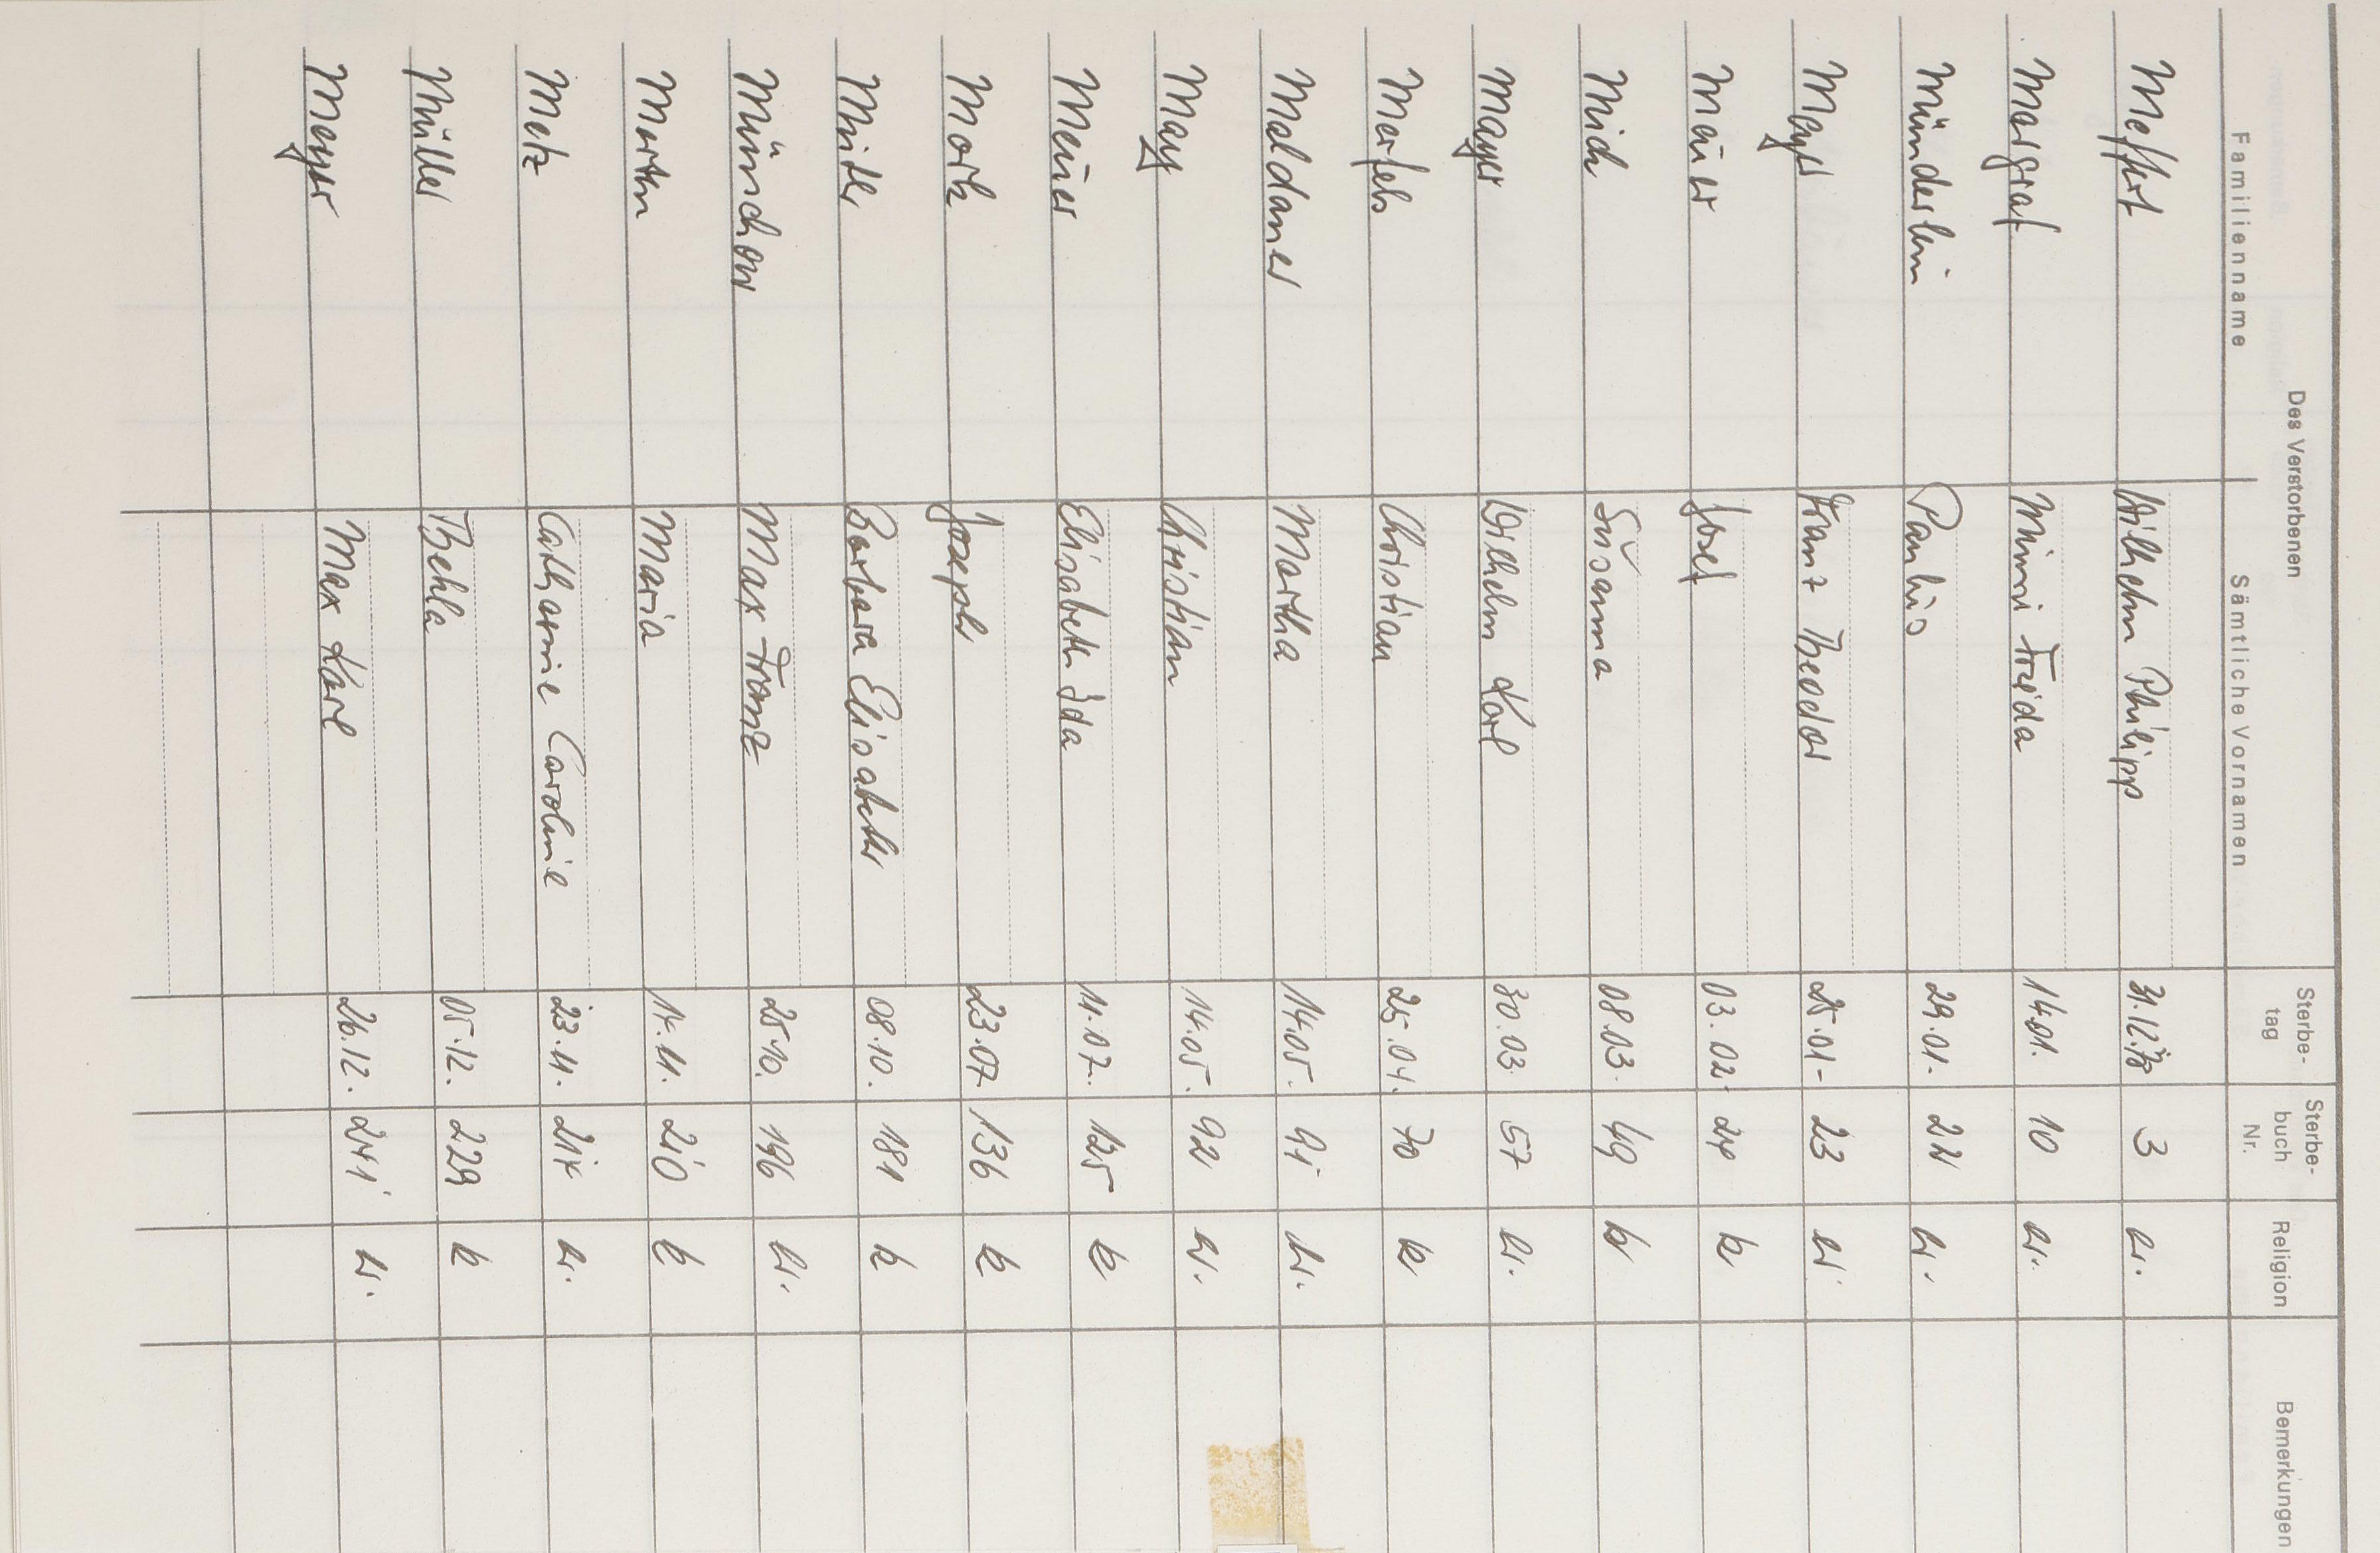 Des Verstorbenen
Familienname Sämtliche Vornamen Sterbe-tag Sterbe-buch Nr. Religion Bemerkungen
Meffert Wilhelm Philipp 31.12.78 3 ev.
Margraf Minni Frieda 14.01. 10 ev.
Münderlein Paulus 29.01. 21 ev.
Mayer Franz Theodor 25.01. 23 ev.
Mauer Josef 03.02. 24 k
Mich Susanna 08.03. 49 k
Mayer Wilhelm Karl 30.03. 57 ev.
Merfels Christian 25.04. 70 k
Maldaner Martha 14.05. 91 ev.
May Christian 14.05. 92 ev.
Meuer Elisabeth Ida 11.07. 125 k
Mork Joseph 23.07. 136 k
Barbara Elisabeth 08.10. 181 k
Münchow Max Franz 25.10. 196 ev.
Maria 14.11. 210 k
Metz Catharine Caroline 23.11. 214 ev.
Müller Thekla 05.12. 229 k
Meyer Max Karl 26.12. 241 ev.